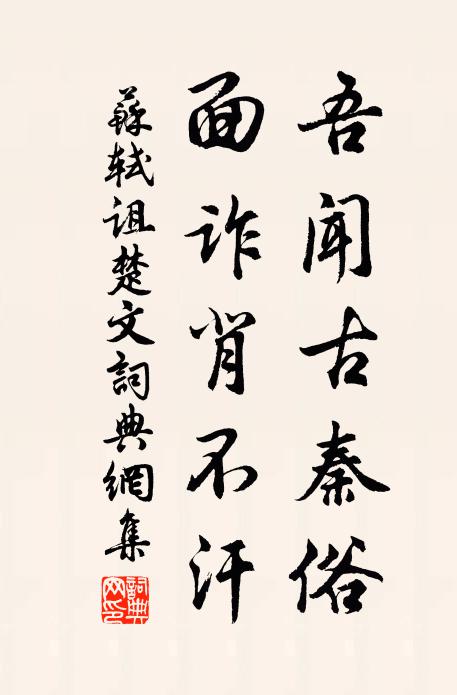 吾闻古秦俗
面诈背不汗
蘇轼诅楚文詞典網集
詞典网印